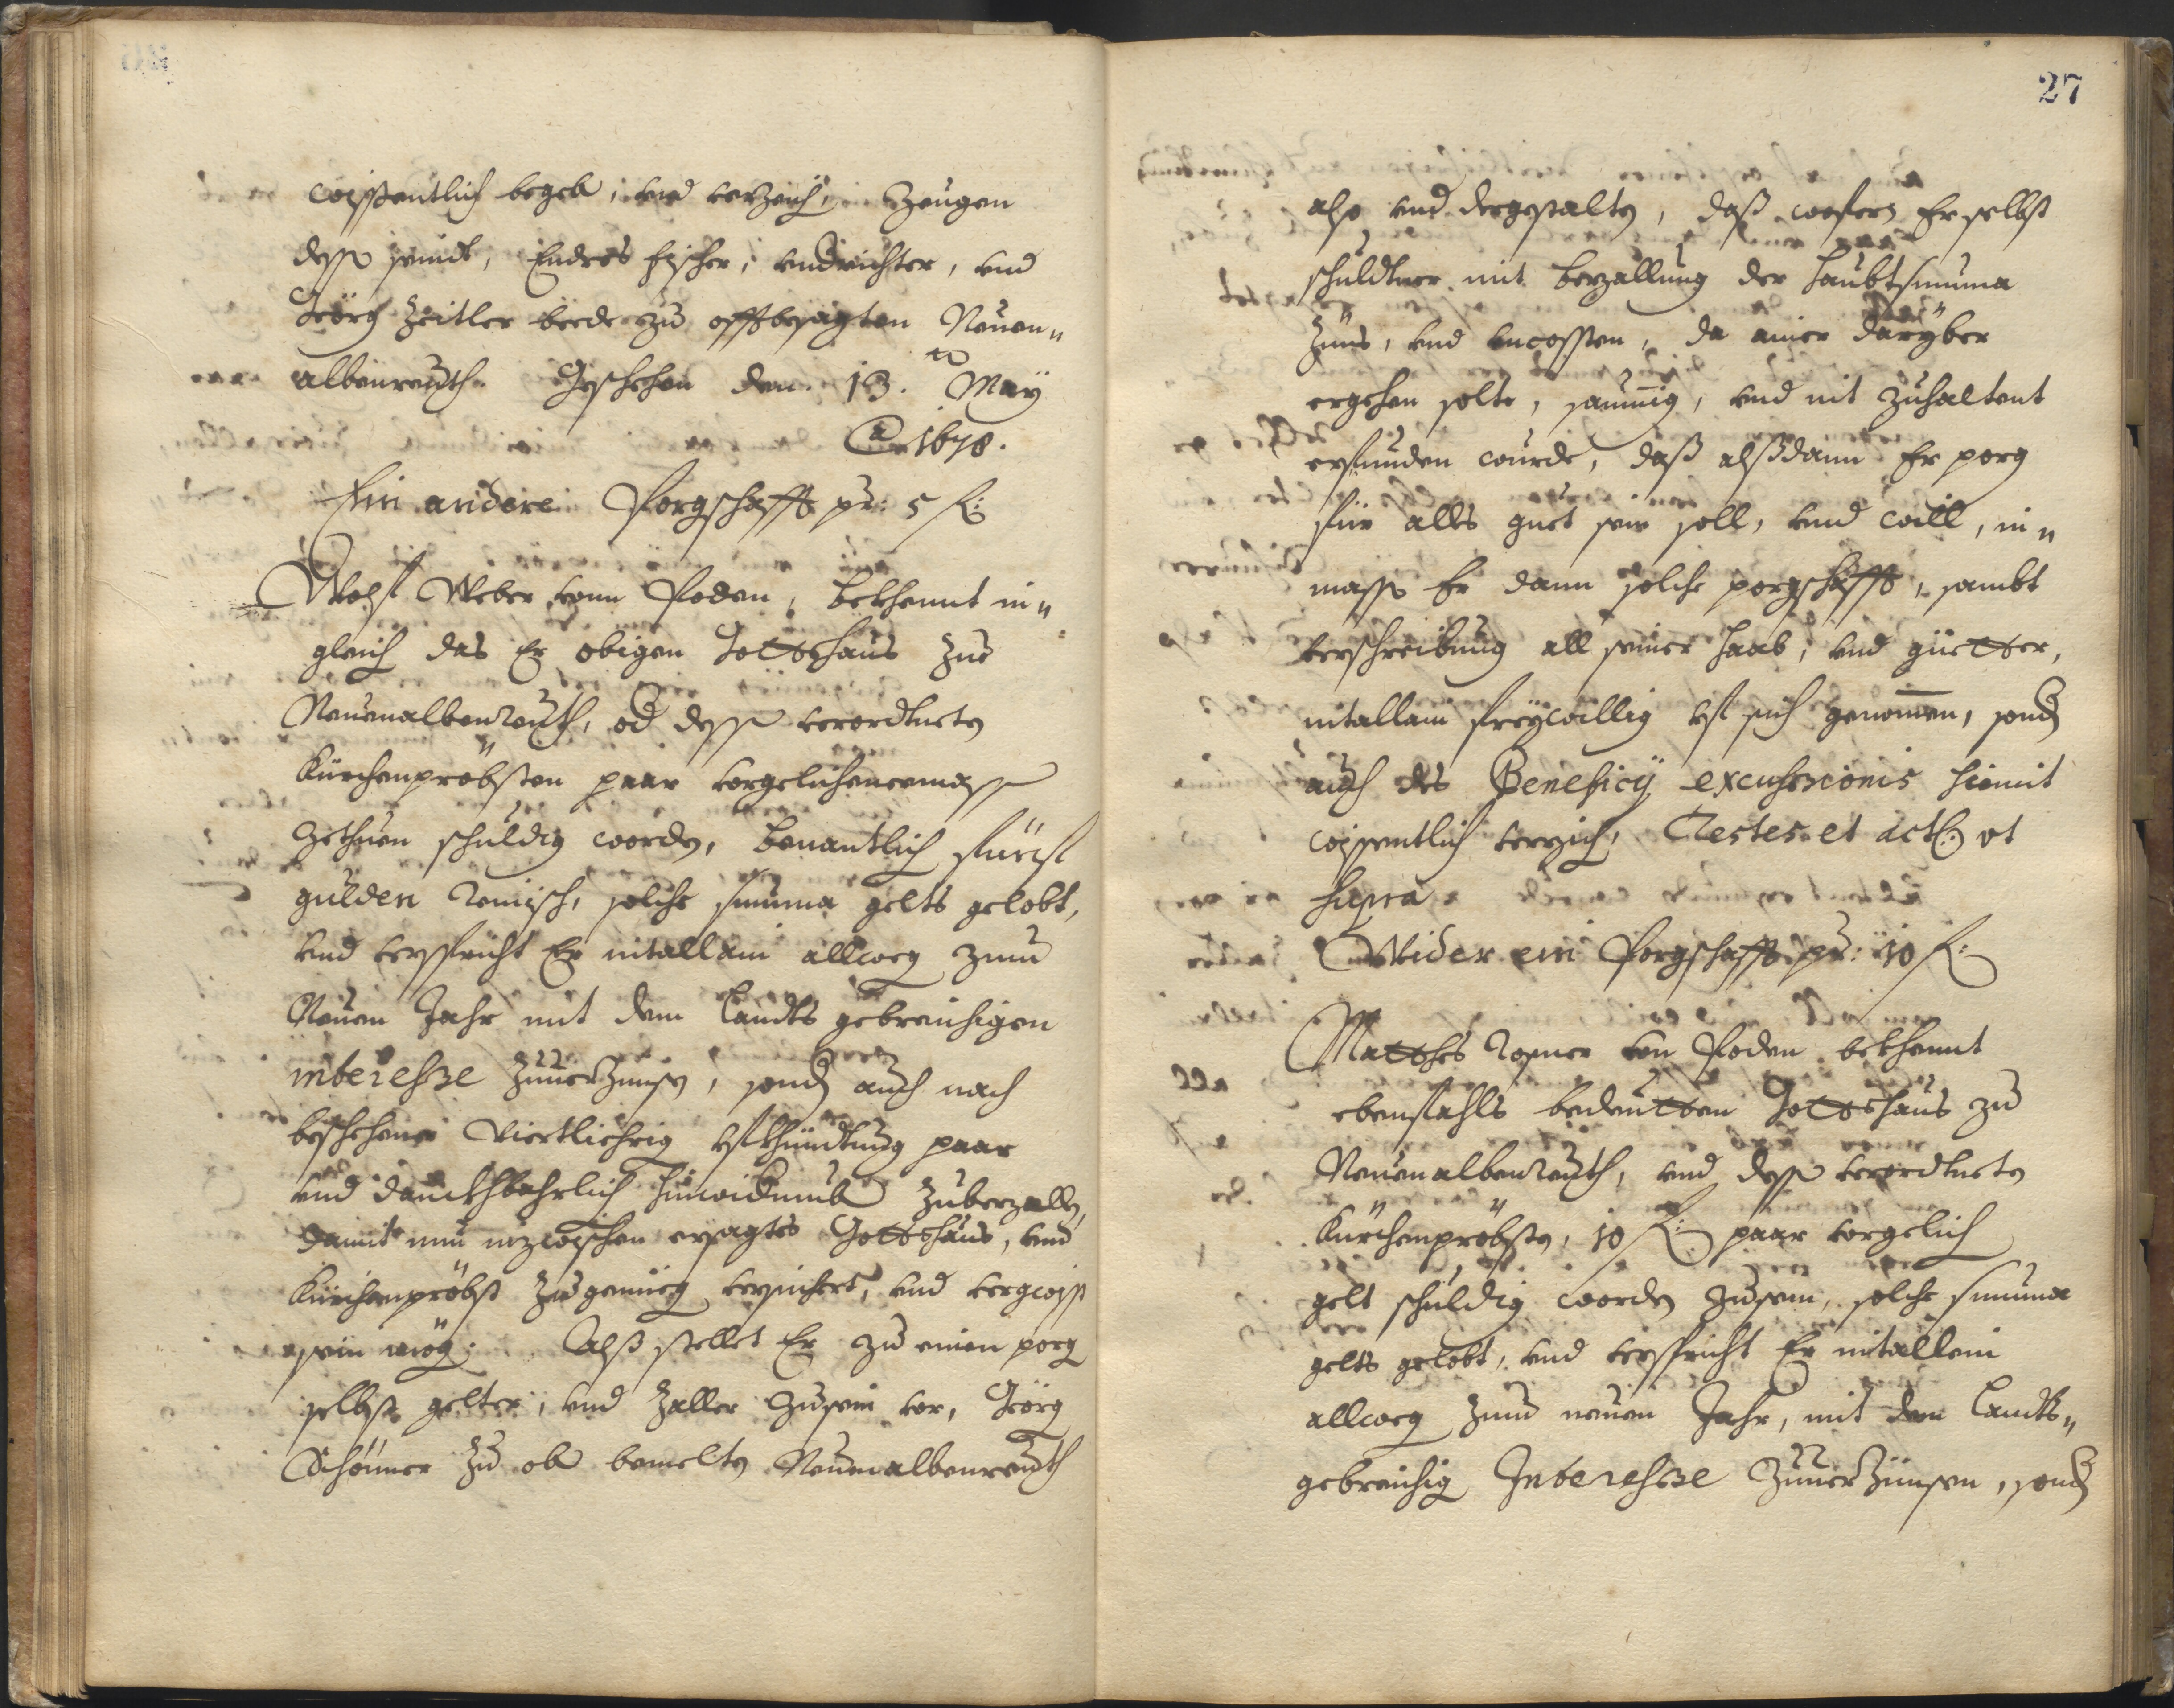 wissentlich begeb, und verzeich, Zeugen
dess seindt, Endres fischer, undrichter, und
Geörg Zeitler beede zu offtbesagten Neuen„
albenreuth. Geschehen den 13. to May
Ao 1678.
Ein andere Porgschafft pr: 5 fl:
Wolf Weber vonn Poden, bekhennt in„
gleich das Er obigen Gottshaus zue
Neuenalbenreuth, od dess verordtneten
Kürchenpröbsten paar vorgelichenermass
Zethuen schuldig worden, benantlich fünf
gulden Reinisch, solche Summa gelts gelobt,
und verspricht Er nitallain allweg zum
Neuen Jahr mit dem Landts gebreuchigen
interesse Zuuerzinsen, sond auch nach
beschehener Viertljehrig ufkhündtung paar
und danckhbahrlich hinwiderumb Zubezallen,
damit nun inzwischen ersagtes Gottshaus, und
Kürchenpröbst Zugenüeg versichert, und vergwiss
sein mög. Alß stellet Er zu einen porg
selbst gelter, und Zaller Zusein vor, Geörg
Schönner zu ob bemelten Neuenalbenreuth
27
also und dergestalten, daß wofern Er selbst
schuldtner mit bezallung der Haubtsumma
Zünß, und uncossten, da ainer darüber
ergehen solte, saumig, und nit Zuhaltent
erfunden wurde, daß alßdann Er porg
für alles guet sein soll, und will, in„
mass Er dann solche porgschafft, sambt
verschreibung all seiner Haab, und güetter,
nitallain freywillig uf sich genommen, sond
auch des Beneficij excussionis hiemit
wissentlich verzich, Testes et act: vt
supra
Wider ein Porgschafft pr: 10 fl:
Matthes Rosner von Poden bekhennt
ebenfahls bedeutten Gottshaus zu
Neuenalbenreuth, und dess verordtneten
Kürchenpröbsten, 10 fl: paar vorgelich
gelt schuldig worden Zusein, solche Summa
gelts gelobt, und verspricht Er nitallein
allweg zum neuen Jahr, mit dem Landts„
gebreuchig Interesse Zuuerzünsen, sond